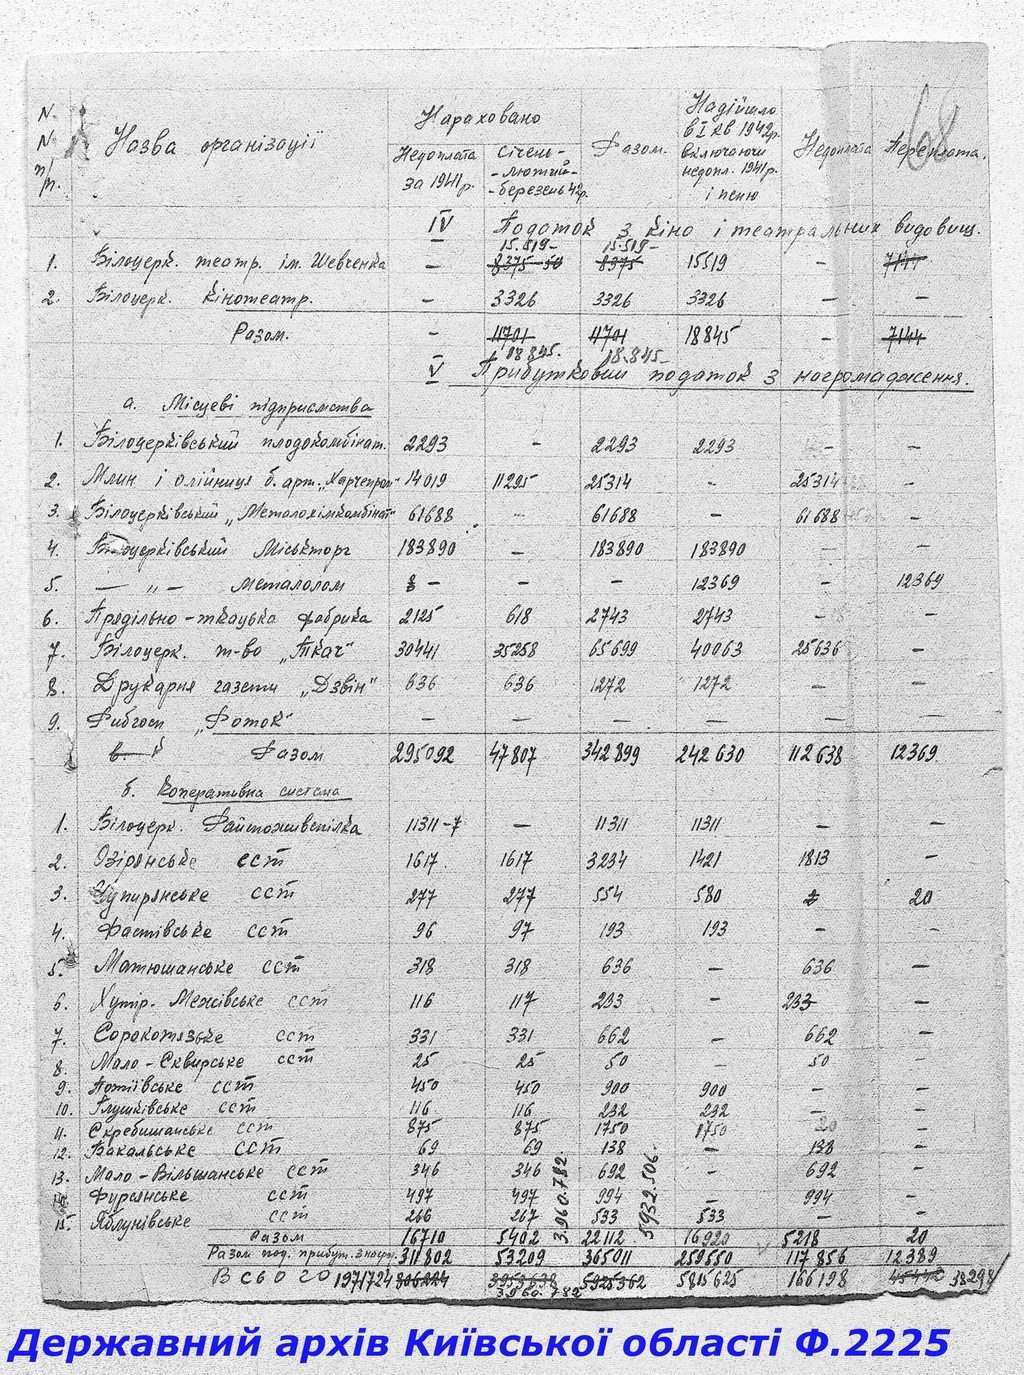 N. N. п/п. Назва організації Нараховано Разом. Надійшло в І кв 1942р. включаючи недопл. 1941р. і пеню Недоплата Переплата. 68
Недоплата за 1941р. Січень- -лютий- -березень 42р.
IV Податок з кіно і театральних видовищ.
15.519- 15.519-
1. Білоцерк. театр. ім. Шевченка – 8375-50 8375 15519 7144
2. Білоцерк. кінотеатр. – 3326 3326 3326 – –
Разом. – 11701 11701 18845 – 7144
18845. 18.845-
V Прибутковий податок з нагромадження.
а. Місцеві підприємства
1. Білоцерківський плодокомбінат. 2293 – 2293 2293 – –
2. Млин і олійниця б. арт. „Харчепром" 14019 11295 25314 – 25314
3. Білоцерківський „Металохімкомбінат" 61688 – 61688 – 61688 –
4. Білоцерківський Міськторг 183890 – 183890 183890 – –
5. — „ — Металолом – – – 12369 – 12369
6. Прядільно-ткацька фабрика 2125 618 2743 2743 – –
7. Білоцерк. т-во „Ткач" 30441 35258 65699 40063 25636 –
8. Друкарня газети „Дзвін" 636 636 1272 1272 – –
9. Рибгосп „Роток" – – – – – –
Разом 295092 47807 342899 242630 112638 12369.
б. Коперативна система
1. Білоцерк. Райспоживспілка 11311-7 – 11311 11311 – –
2. Озірянське сст 1617. 1617 3234 1421 1813 –
3. Чупирянське сст 277 277 554 580 20
4. Фастівське сст 96 97 193 193 – –
5. Матюшанське сст 318 318 636 – 636 –
6. Хутір-Межівське сст 116 117 233 – 233 –
7. Сорокотязьке сст 331 331 662 – 662 –
8. Мало-Сквирське сст 25 25 50 – 50 –
9. Потіївське сст 450 450 900 900 – –
10. Глушківське сст 116 116 232 232 – –
11. Скребишанське сст 875 875 1750 1750 –
12. Бакальське сст 69 69 138 – 138 –
13. Мало-Вільшанське сст 346 346 692 – 692 –
14. Фурсянське сст 497 497 994 – 994 –
15. Яблунівське сст 266 267 533 533 – –
3.960.782. 5932.506.
Разом 16710 5402 22112 16920 5218 20
Разом под. прибут. з нагр. 311802 53209 365011 259550 117856 12389
ВСЬОГО 1971724 806224 3953638 5925362 5815625 166198 45442 38298
3.960.782
Державний архів Київської області Ф.2225